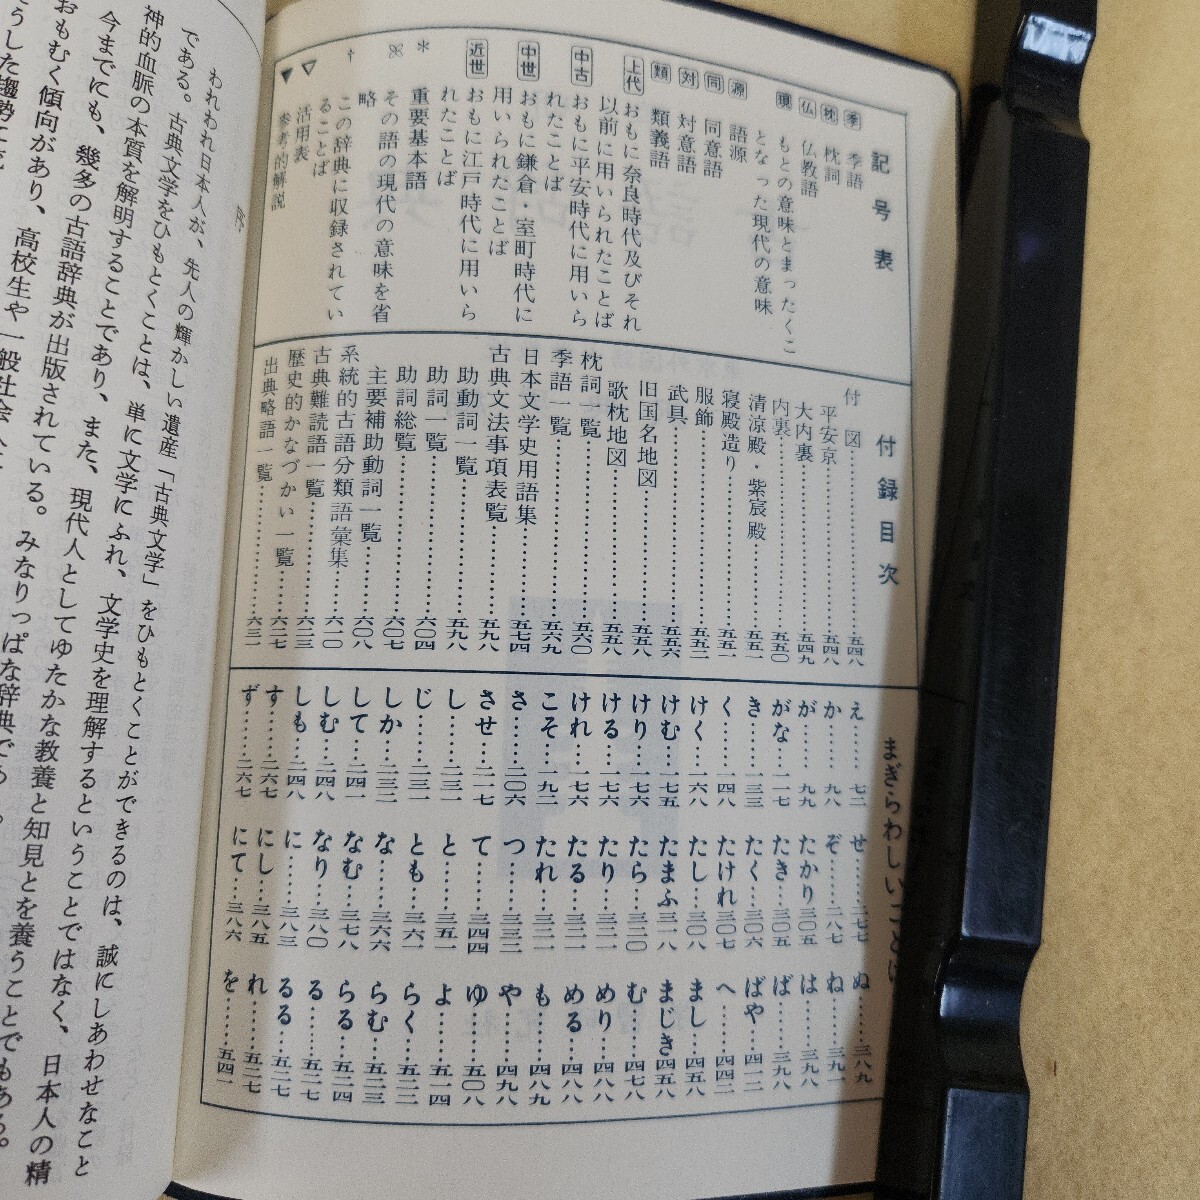 記号表
季 季語
枕 枕詞
仏 仏教語
現 もとの意味とまったくこ
となった現代の意味
源 語源
同 同意語
対 対意語
類 類義語
上代 おもに奈良時代及びそれ
以前に用いられたことば
中古 おもに平安時代に用いら
れたことば
中世 おもに鎌倉・室町時代に
用いられたことば
近世 おもに江戸時代に用いら
れたことば
* 重要基本語
※ その語の現代の意味を省
略
† この辞典に収録されてい
ることば
▽ 活用表
▼ 参考的解説
付録目次
付図……五四八
平安京……五四八
大内裏……五四九
内裏……五五〇
清涼殿・紫宸殿……五五一
寝殿造り……五五一
服飾……五五二
武具……五五六
旧国名地図……五五八
歌枕地図……五五八
枕詞一覧……五六〇
季語一覧……五六九
日本文学史用語集……五七四
古典文法事項表覧……五九八
助動詞一覧……五九八
助詞一覧……六〇四
助詞総覧……六〇七
主要補助動詞一覧……六〇八
系統的古語分類語彙集……六一〇
古典難読語一覧……六二三
歴史的かなづかい一覧……六二七
出典略語一覧……六三一
まぎらわしいことば
え……七二
か……九八
が……九九
がな……一一七
き……一三三
く……一四八
けく……一六八
けむ……一七五
けり……一七六
ける……一七六
けれ……一七六
こそ……一九二
さ……二〇六
させ……二一七
し……二三一
じ……二三一
しか……二三二
して……二四一
しむ……二四八
しも……二四八
す……二六七
ず……二六七
せ……二七七
ぞ……二八七
たかり……三〇五
たき……三〇五
たく……三〇六
たけれ……三〇七
たし……三〇八
たまふ……三一八
たら……三二〇
たり……三二一
たる……三二一
たれ……三二一
つ……三三二
て……三四四
と……三五一
とも……三六一
な……三六六
なむ……三七八
なり……三八〇
に……三八三
にし……三八五
にて……三八六
ぬ……三八九
ね……三九一
は……三九八
ば……三九八
ばや……四一二
へ……四四二
まし……四五八
まじき……四五八
む……四七八
めり……四八八
める……四八八
も……四八九
や……四九八
ゆ……五〇八
よ……五一四
らく……五二二
らむ……五二三
らる……五二四
る……五二七
るる……五二七
れ……五二七
を……五四一
序
われわれ日本人が、先人の輝かしい遺産「古典文学」をひもとくことができるのは、誠にしあわせなこと
である。古典文学をひもとくことは、単に文学にふれ、文学史を理解するということではなく、日本人の精
神的血脈の本質を解明することであり、また、現代人としてゆたかな教養と知見とを養うことでもある。
今までにも、幾多の古語辞典が出版されている。みなりっぱな辞典であ
おもむく傾向があり、高校生や一般社会人
うした趨勢にで